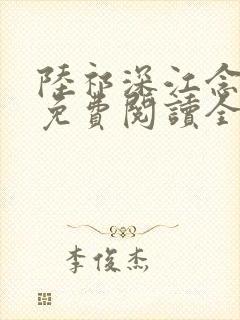 陸祁深江念
免費閱讀全
李俊杰